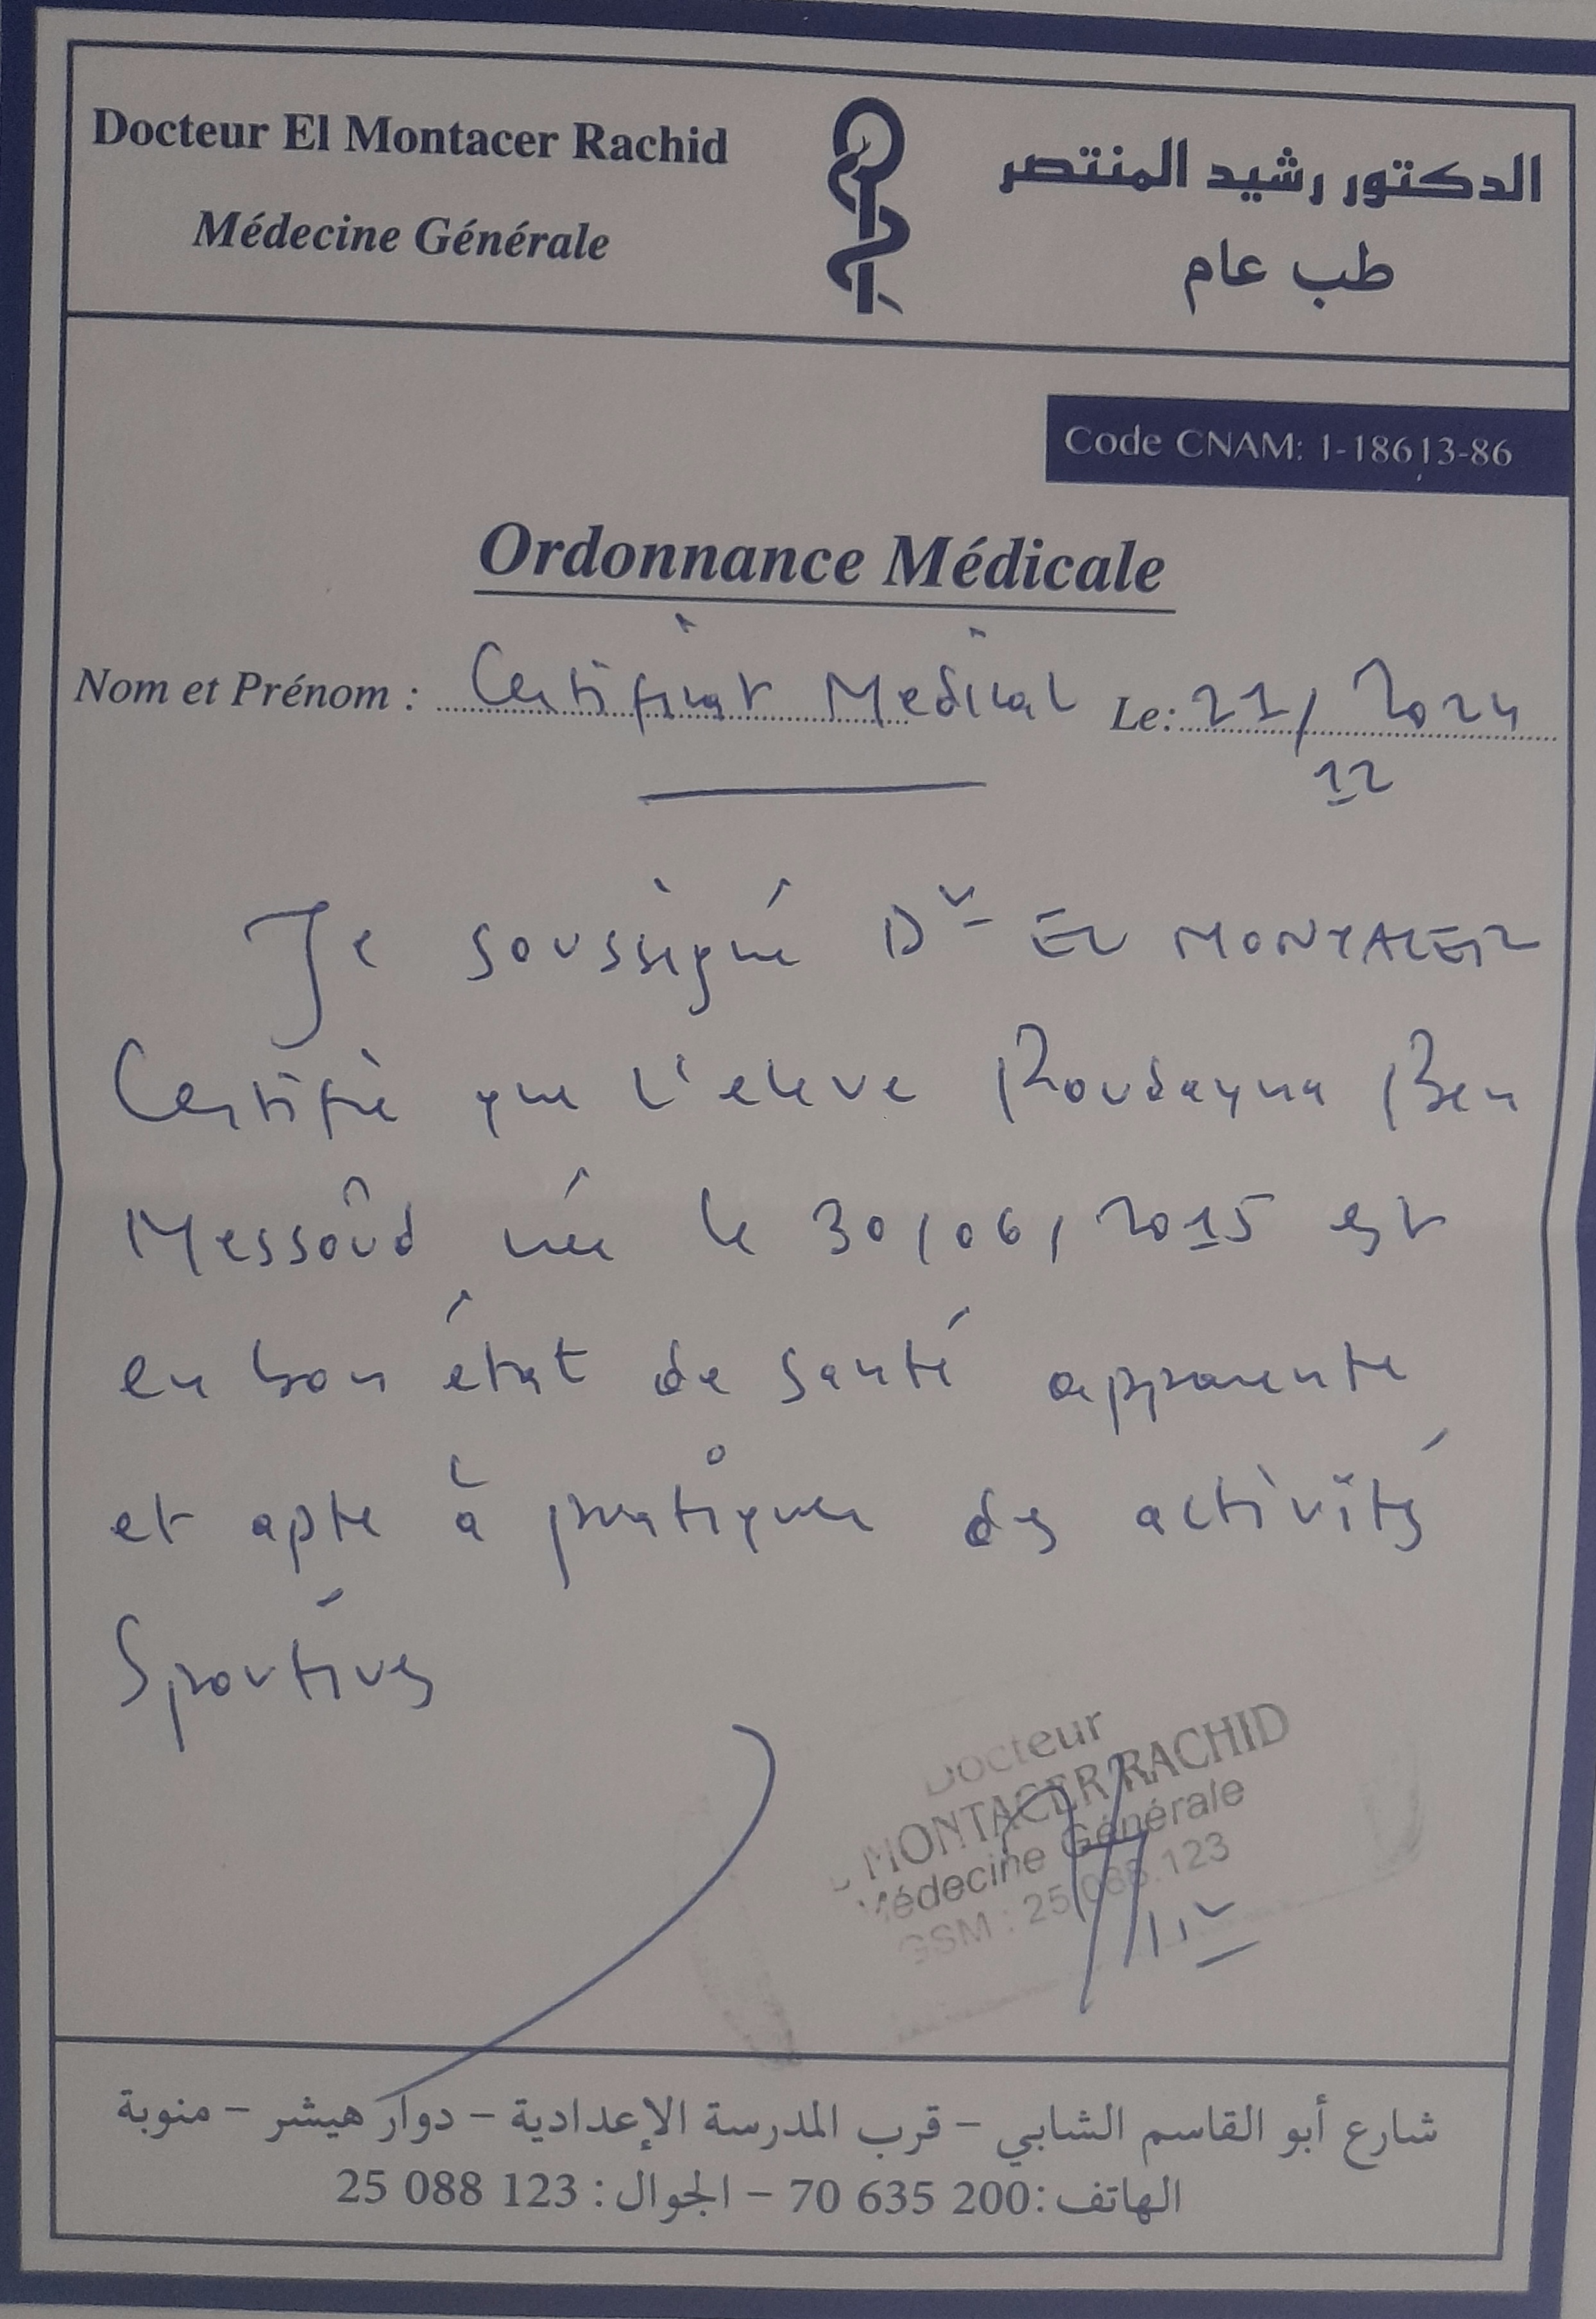 Docteur El Montacer Rachid
Médecine Générale
الدكتور رشيد المنتصر
طب عام
Code CNAM: 1-18613-86
Ordonnance Médicale
Nom et Prénom : Certificat Medical Le: 21/12/2024
Je soussigné Dr EL MONTACER
Certifie que l'eleve Roudayna Ben
Messoûd née le 30/06/2015 est
en bon état de santé apparente
et apte à pratiquer des activités
Sportives
Docteur
MONTACER RACHID
Médecine Générale
GSM : 25.088.123
شارع أبو القاسم الشابي - قرب المدرسة الإعدادية - دوار هيشر - منوبة
الهاتف: 200 635 70 - الجوال : 123 088 25